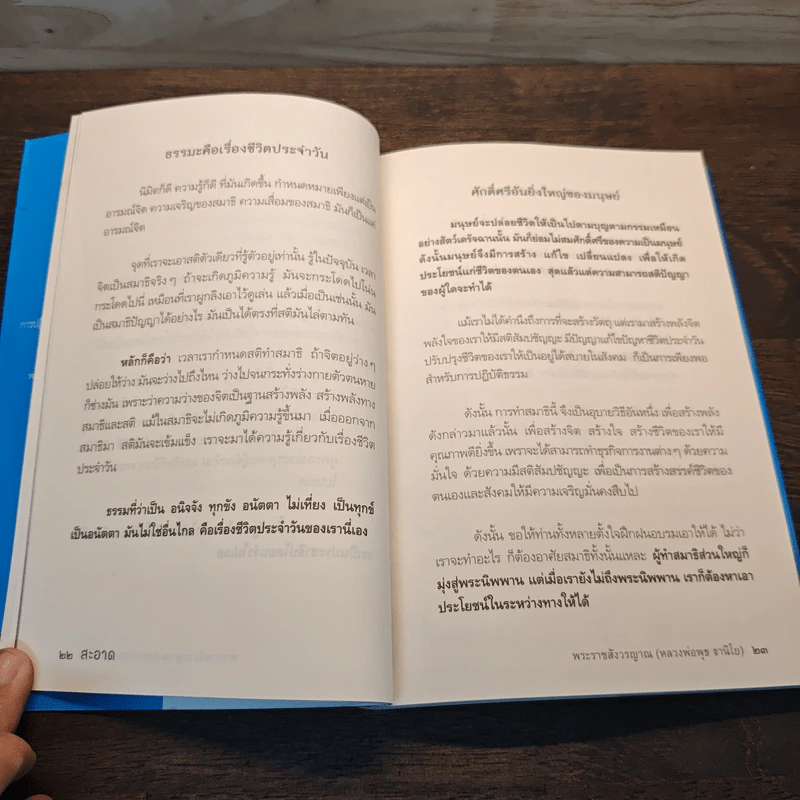 ธรรมะคือเรื่องชีวิตประจำวัน
นิมิตก็ดี ความรู้ก็ดี ที่มันเกิดขึ้น กำหนดหมายเพียงแต่เป็น
อารมณ์จิต ความเจริญของสมาธิ ความเสื่อมของสมาธิ มันก็เป็นแค่
อารมณ์จิต
จุดที่เราจะเอาสติตัวเดียวที่รู้ตัวอยู่เท่านั้น รู้ในปัจจุบัน เวลา
จิตเป็นสมาธิจริงๆ ถ้าจะเกิดภูมิความรู้ มันจะกระโดดไปโน่น
กระโดดไปนี่ เหมือนที่เราผูกลิงเอาไว้ดูเล่น แล้วเมื่อเป็นเช่นนั้น มัน
เป็นสมาธิปัญญาได้อย่างไร มันเป็นได้ตรงที่สติมันไล่ตามทัน
หลักก็คือว่า เวลาเรากำหนดสติทำสมาธิ ถ้าจิตอยู่ว่างๆ
ปล่อยให้ว่าง มันจะว่างไปถึงไหน ว่างไปจนกระทั่งร่างกายตัวตนหาย
ก็ช่างมัน เพราะว่าความว่างของจิตเป็นฐานสร้างพลัง สร้างพลังทาง
สมาธิและสติ แม้ในสมาธิจะไม่เกิดภูมิความรู้ขึ้นมา เมื่อออกจาก
สมาธิมา สติมันจะเข้มแข็ง เราจะมาได้ความรู้เกี่ยวกับเรื่องชีวิต
ประจำวัน
ธรรมที่ว่าเป็น อนิจจัง ทุกขัง อนัตตา ไม่เที่ยง เป็นทุกข์
เป็นอนัตตา มันไม่ใช่อื่นไกล คือเรื่องชีวิตประจำวันของเรานี่เอง
๒๒ สะอาด
ศักดิ์ศรีอันยิ่งใหญ่ของมนุษย์
มนุษย์จะปล่อยชีวิตให้เป็นไปตามบุญตามกรรมเหมือน
อย่างสัตว์เดรัจฉานนั้น มันก็ย่อมไม่สมศักดิ์ศรีของความเป็นมนุษย์
ดังนั้นมนุษย์จึงมีการสร้าง แก้ไข เปลี่ยนแปลง เพื่อให้เกิด
ประโยชน์แก่ชีวิตของตนเอง สุดแล้วแต่ความสามารถสติปัญญา
ของผู้ใดจะทำได้
แม้เราไม่ได้คำนึงถึงการที่จะสร้างวัตถุ แต่เรามาสร้างพลังจิต
พลังใจของเราให้มีสติสัมปชัญญะ มีปัญญาแก้ไขปัญหาชีวิตประจำวัน
ปรับปรุงชีวิตของเราให้เป็นอยู่ได้สบายในสังคม ก็เป็นการเพียงพอ
สำหรับการปฏิบัติธรรม
ดังนั้น การทำสมาธินี้ จึงเป็นอุบายวิธีอันหนึ่ง เพื่อสร้างพลัง
ดังกล่าวมาแล้วนั้น เพื่อสร้างจิต สร้างใจ สร้างชีวิตของเราให้มี
คุณภาพดียิ่งขึ้น เพราจะได้สามารถทำธุรกิจการงานต่างๆ ด้วยความ
มั่นใจ ด้วยความมีสติสัมปชัญญะ เพื่อเป็นการสร้างสรรค์ชีวิตของ
ตนเองและสังคมให้มีความเจริญมั่นคงสืบไป
ดังนั้น ขอให้ท่านทั้งหลายตั้งใจฝึกฝนอบรมเอาให้ได้ ไม่ว่า
เราจะทำอะไร ก็ต้องอาศัยสมาธิทั้งนั้นแหละ ผู้ทำสมาธิส่วนใหญ่ก็
มุ่งสู่พระนิพพาน แต่เมื่อเรายังไม่ถึงพระนิพพาน เราก็ต้องหาเอา
ประโยชน์ในระหว่างทางให้ได้
พระราชสังวรญาณ (หลวงพ่อพุธ ฐานิโย) ๒๓